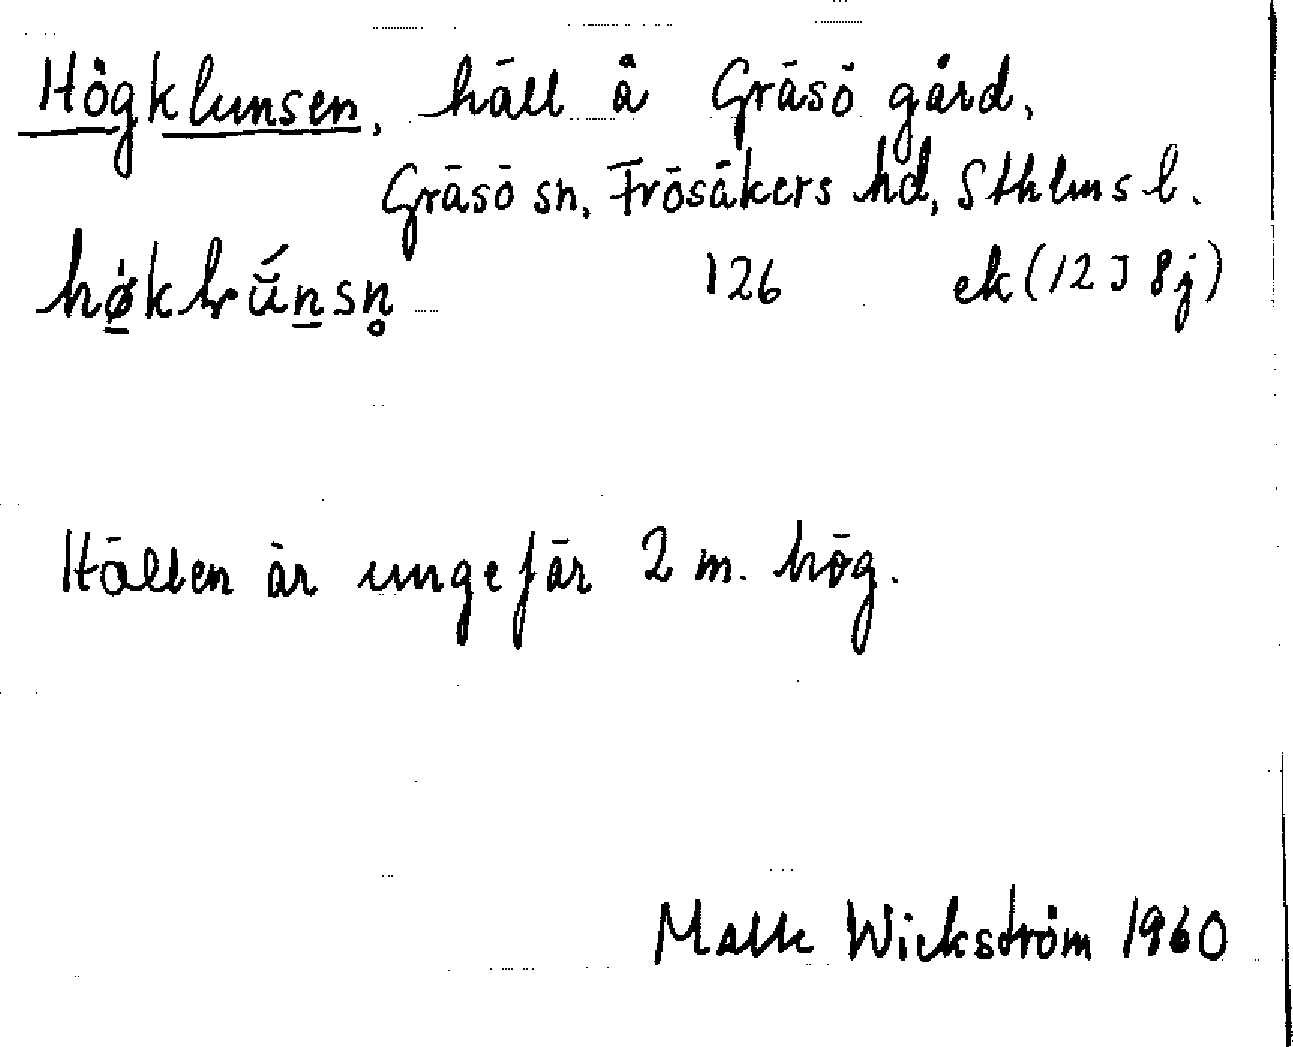 Högklunsen, häll å Gräsö gård,
Gräsö sn, Frösåkers hd, Sthlms l.
126 ek (12 J 8j)
Hällen är ungefär 2 m. hög.
Malte Wickström 1960